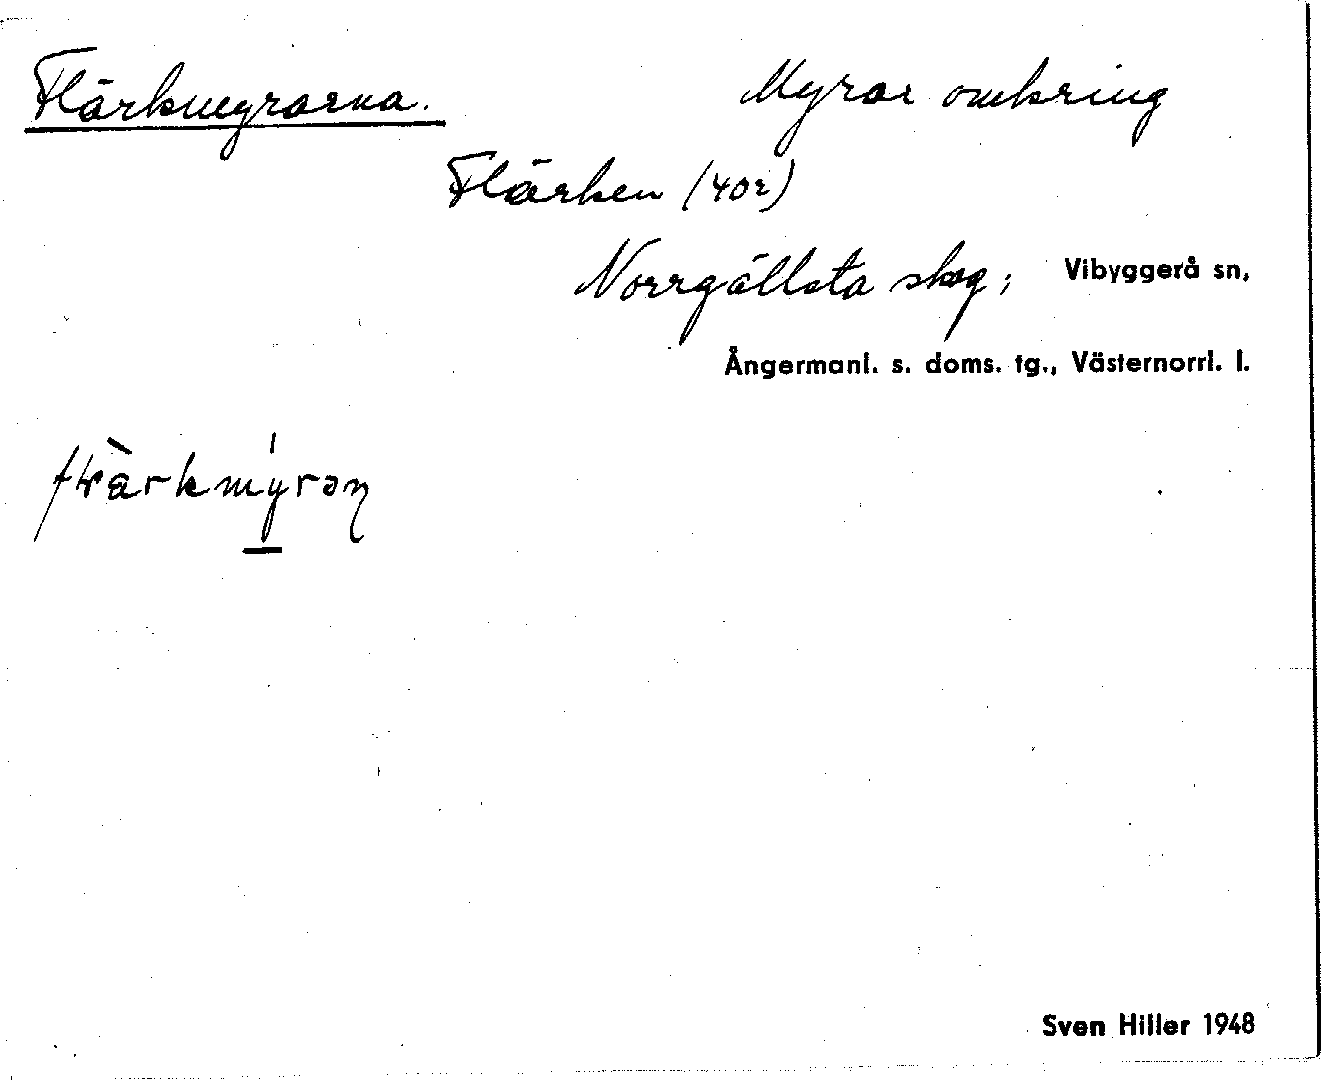 Flärkmyrarna. Myrar omkring
Flärken (402)
Norrgällsta skog; Vibyggerå sn,
Ångermanl. s. doms. tg., Västernorrl. l.
Sven Hiller 1948